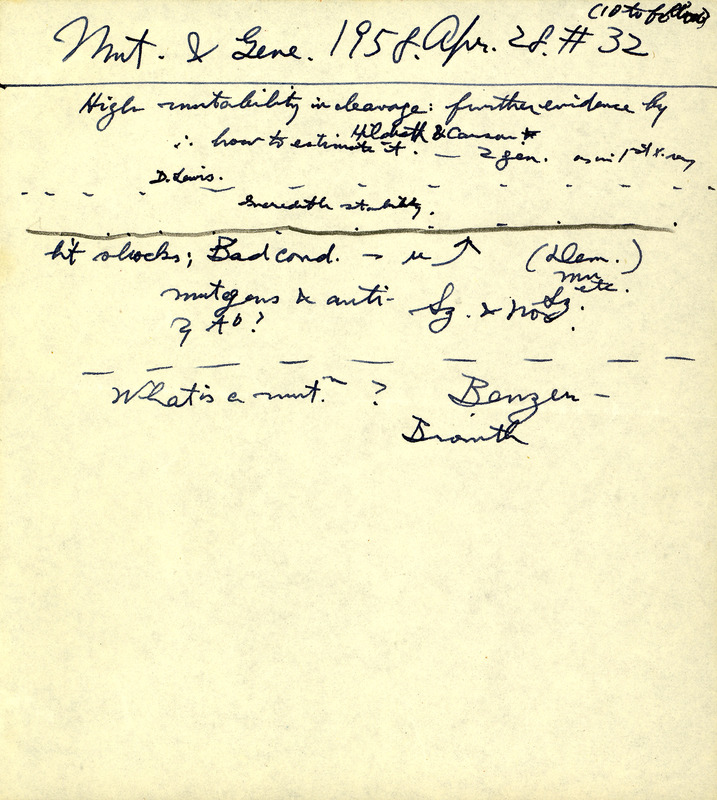 (10 to follow)
Mut. & Gene. 1958. Apr. 28. # 32
High mutability in cleavage: further evidence by
Hildreth & Carson.
∴ how to estimate it. — 2 gen. as in 1st X-ray
D. Lewis.
Incredible stability.
ht shocks; Bad cond. → μ ↑ (Dem.)
mu etc.
mutgens & anti- Sz. & Nov. Sz.
What is a mut.n ? Benzer –